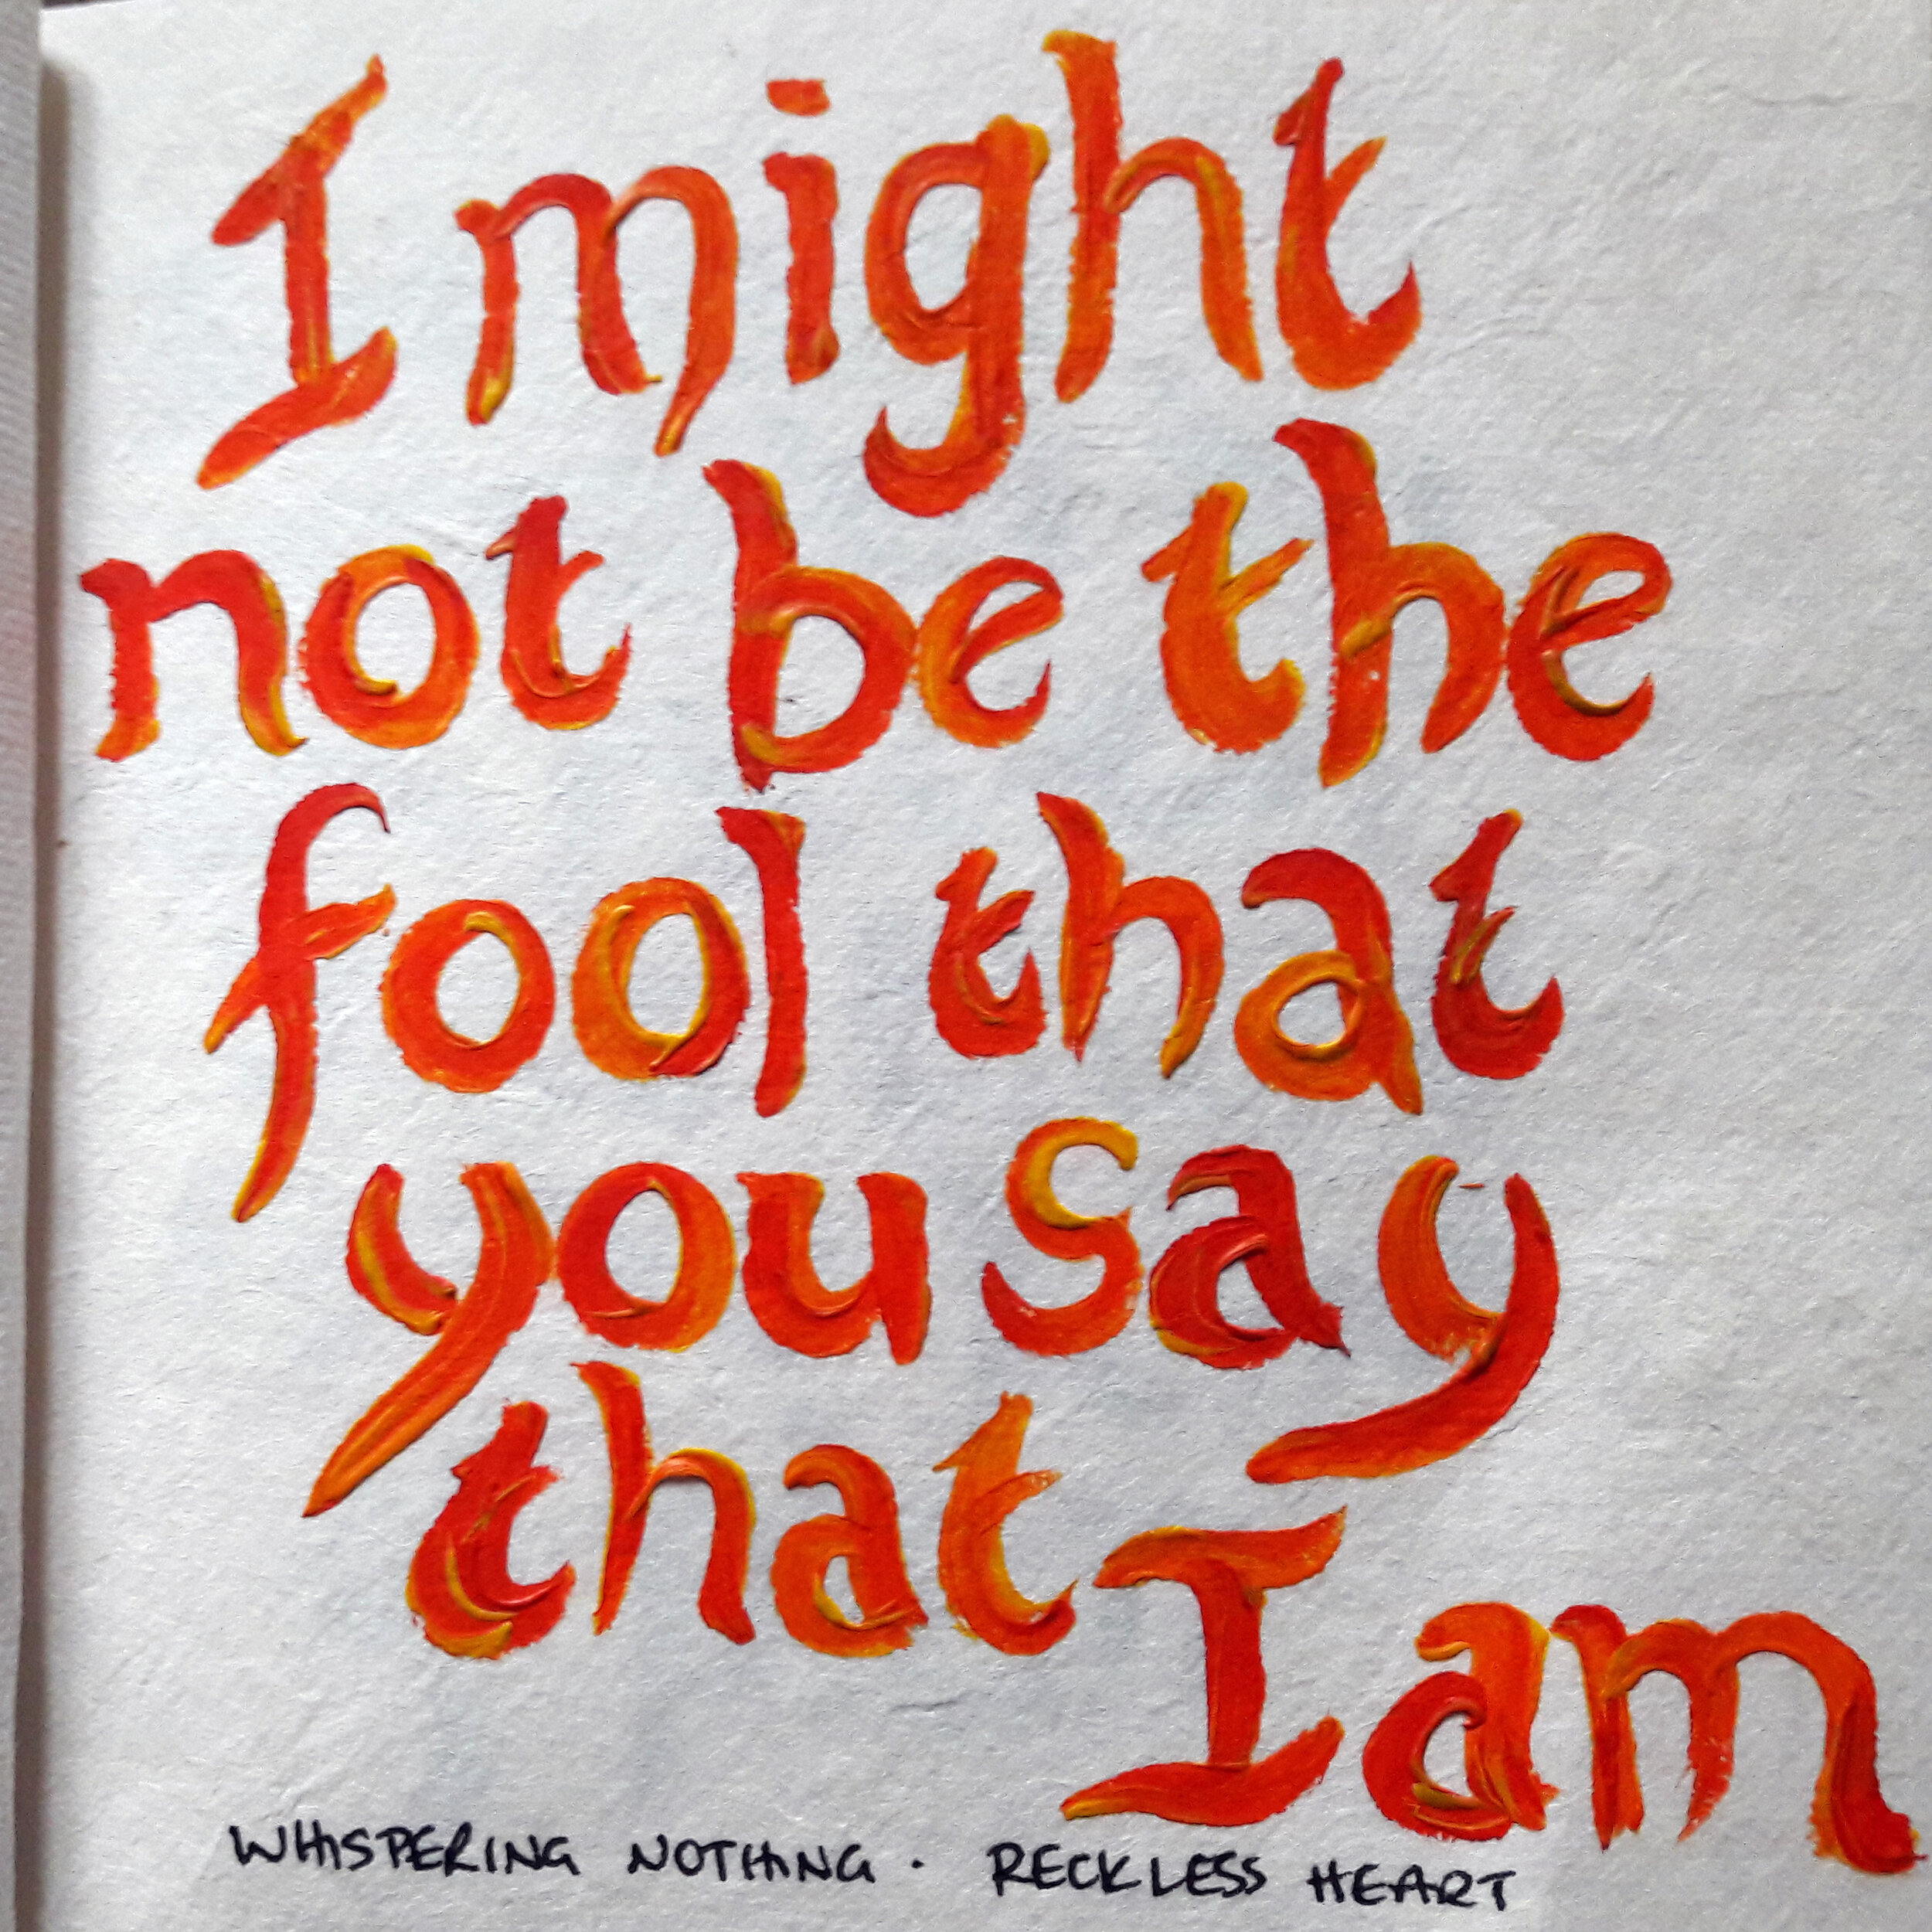 I might
not be the
fool that
you say
that I am
WHISPERING NOTHING . RECKLESS HEART